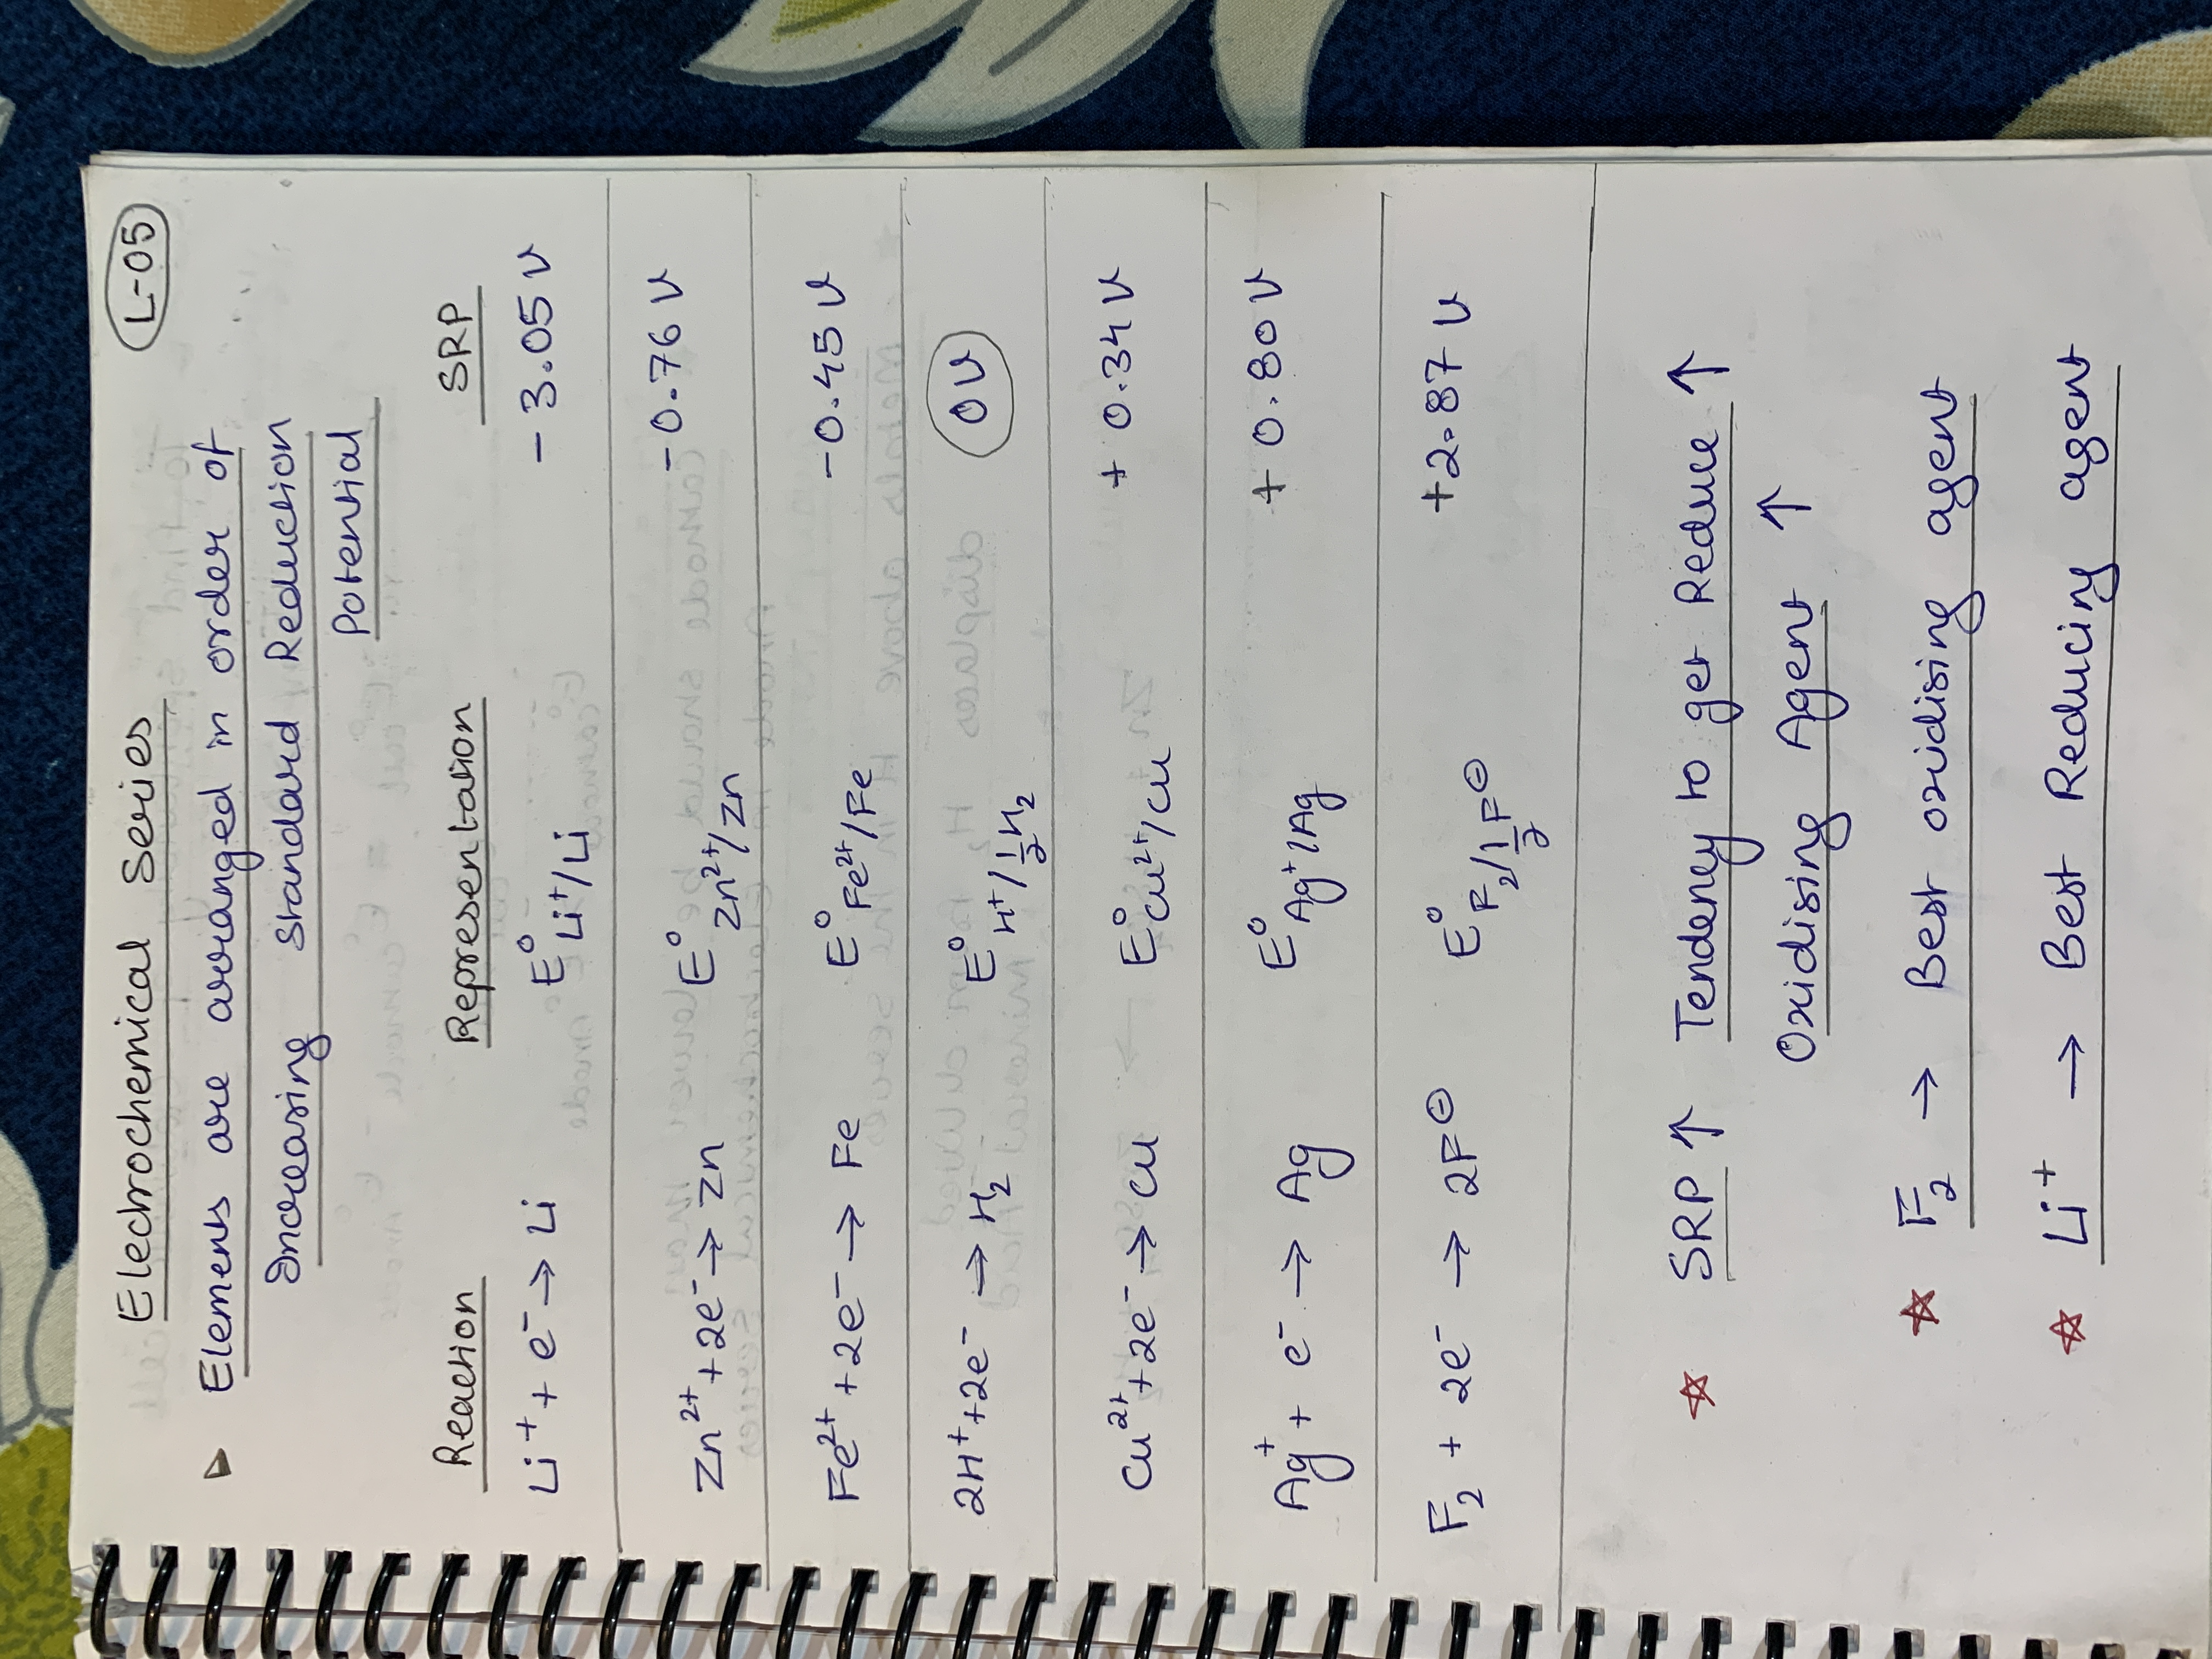 Electrochemical Series
L-05
Elements are arranged in order of
Increasing Standard Reduction
Potential
Reaction Representation SRP
Li⁺ + e⁻ → Li E⁰ Li⁺/Li - 3.05 V
Zn²⁺ + 2e⁻ → Zn E⁰ Zn²⁺/Zn -0.76 V
Fe²⁺ + 2e⁻ → Fe E⁰ Fe²⁺/Fe -0.45 V
2H⁺ + 2e⁻ → H₂ E⁰ H⁺/½H₂ 0 V
Cu²⁺ + 2e⁻ → Cu E⁰ Cu²⁺/Cu + 0.34 V
Ag⁺ + e⁻ → Ag E⁰ Ag⁺/Ag + 0.80 V
F₂ + 2e⁻ → 2F⊖ E⁰ F₂/½F⊖ +2.87 V
☆ SRP ↑ Tendency to get Reduce ↑
Oxidising Agent ↑
☆ F₂ → Best oxidising agent
☆ Li⁺ → Best Reducing agent